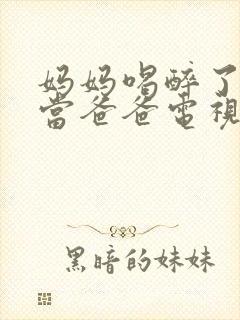 妈妈喝醉了
當爸爸電視
黑暗的妹妹